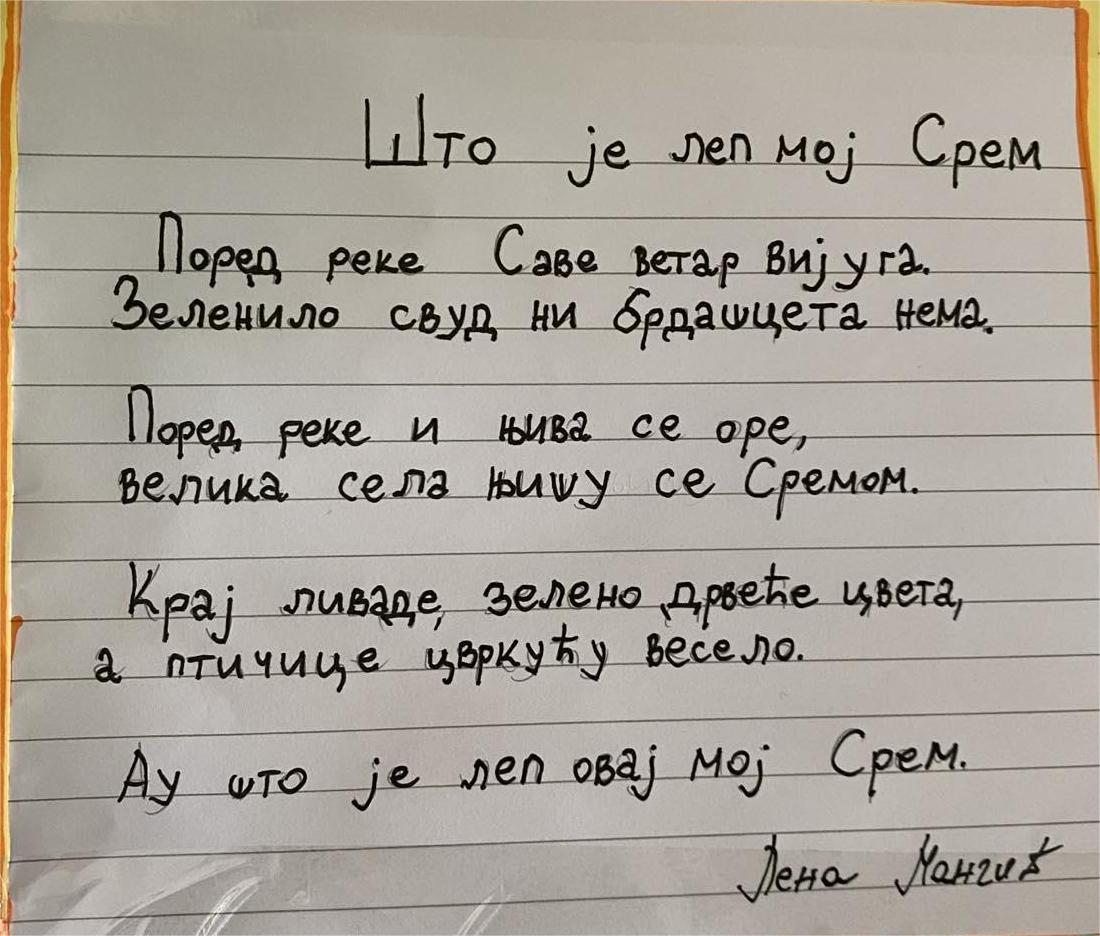 Што је леп мој Срем
Поред реке Саве ветар вијуга.
Зеленило свуд ни брдашцета нема.
Поред реке и њива се оре,
велика села њишу се Сремом.
Крај ливаде, зелено дрвеће цвета,
а птичице цвркућу весело.
Ау што је леп овај мој Срем.
Лена Мангић